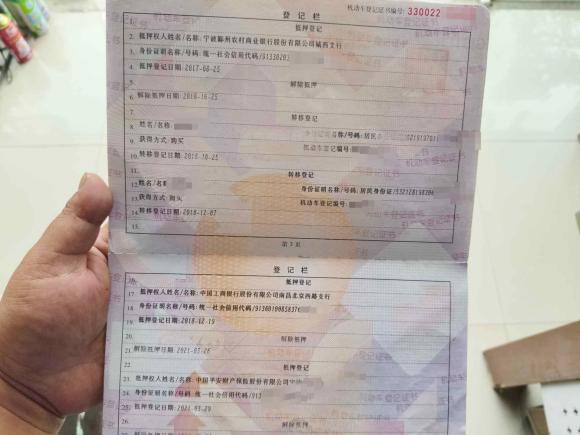 机动车登记证书编号: 330022
登记栏
1. 抵押登记
2. 抵押权人姓名/名称: 宁波鄞州农村商业银行股份有限公司城西支行
3. 身份证明名称/号码: 统一社会信用代码/91330203
4. 抵押登记日期: 2017-08-25
5. 解除抵押
6. 解除抵押日期: 2018-10-25
7. 转移登记
8. 姓名/名称:
名称/号码: 居民
9. 获得方式: 购买
机动车登记编号:
10. 转移登记日期: 2018-10-25
11. 转移登记
12. 姓名/名
身份证明名称/号码: 居民身份证
13. 获得方式: 购买
机动车登记编号:
14. 转移登记日期: 2018-12-07
15.
第3页
登记栏
抵押登记
17. 抵押权人姓名/名称: 中国工商银行股份有限公司南昌北京西路支行
18. 身份证明名称/号码: 统一社会信用代码
19. 抵押登记日期: 2018-12-19
20. 解除抵押
21. 解除抵押日期: 2021-03-26
22. 抵押登记
23. 抵押权人姓名/名称: 中国平安财产保险股份有限公司
24. 身份证明名称/号码: 统一社会信用代码/913
25. 抵押登记日期: 2021-03-29
26. 解除抵押